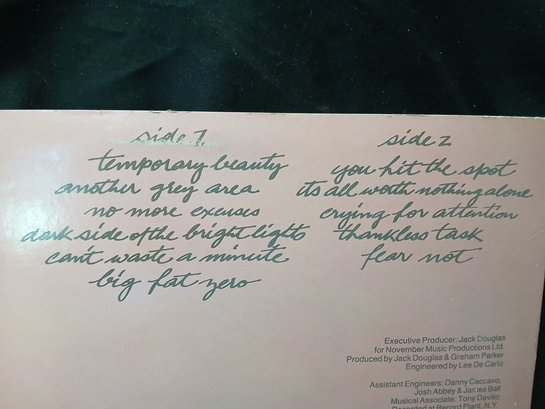 side 1.
temporary beauty
another grey area
no more excuses
dark side of the bright lights
can't waste a minute
big fat zero
side 2
you hit the spot
its all worth nothing alone
crying for attention
thankless task
fear not
Executive Producer: Jack Douglas
for November Music Productions Ltd.
Produced by Jack Douglas & Graham Parker
Engineered by Lee De Carlo
Assistant Engineers: Danny Caccavo,
Josh Abbey & James Ball
Musical Associate: Tony Davilio
Recorded at Record Plant, N.Y.